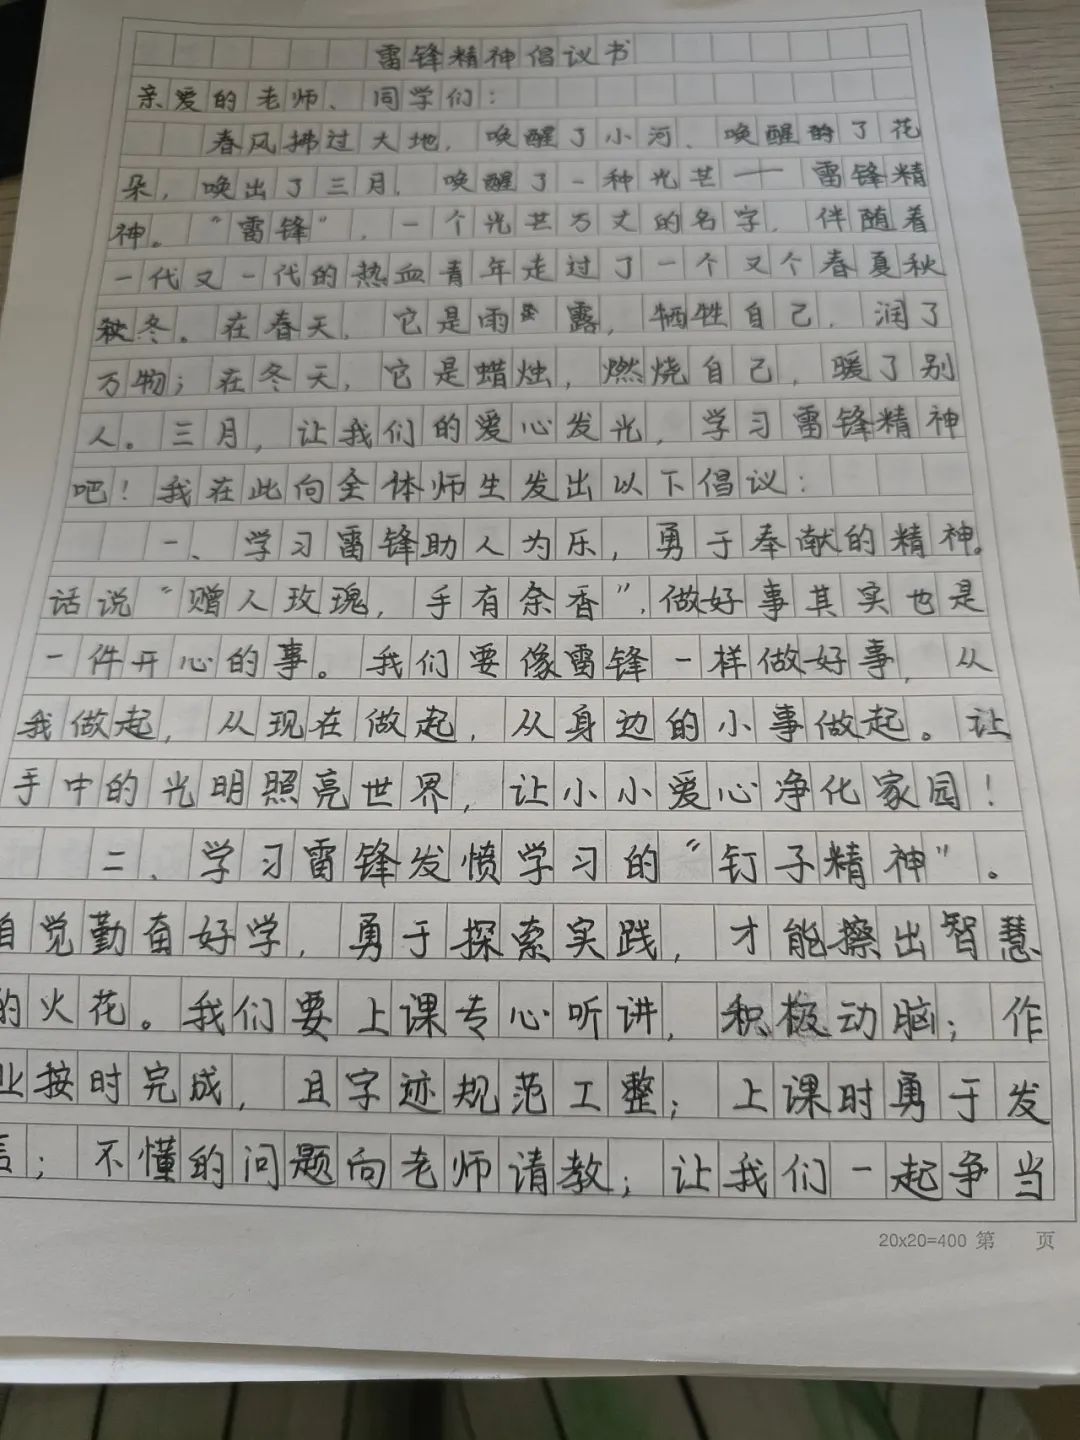 雷锋精神倡议书
亲爱的老师、同学们：
春风拂过大地，唤醒了小河、唤醒了花
朵，唤出了三月，唤醒了一种光芒——雷锋精
神。“雷锋”，一个光芒万丈的名字，伴随着
一代又一代的热血青年走过了一个又个春夏秋
冬。在春天，它是雨露，牺牲自己，润了
万物；在冬天，它是蜡烛，燃烧自己，暖了别
人。三月，让我们的爱心发光，学习雷锋精神
吧！我在此向全体师生发出以下倡议：
一、学习雷锋助人为乐，勇于奉献的精神。
话说“赠人玫瑰，手有余香”，做好事其实也是
一件开心的事。我们要像雷锋一样做好事，从
我做起，从现在做起，从身边的小事做起。让
手中的光明照亮世界，让小小爱心净化家园！
二、学习雷锋发愤学习的“钉子精神”。
自觉勤奋好学，勇于探索实践，才能擦出智慧
的火花。我们要上课专心听讲，积极动脑；作
业按时完成，且字迹规范工整；上课时勇于发
言；不懂的问题向老师请教；让我们一起争当
20x20=400 第 页